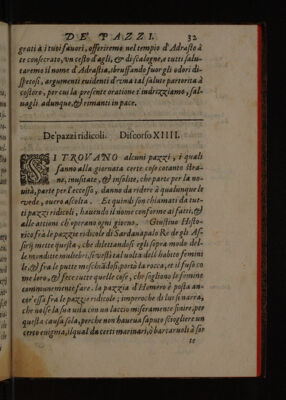 DE' PAZZI. 32
grati a i tuoi fauori, offeriremo nel tempio d'Adrasto à
te consecrato, vn cesto d'agli, & di scalogne, e tutti salu-
taremo il nome d'Adrastia, sbruffando fuor gli odori di-
spettosi, argumenti euidenti d'vna tal salute partorita à
costoro, per cui la presente oratione t'indrizziamo, sal-
uagli adunque, & rimanti in pace.
De' pazzi ridicoli. Discorso XIIII.
SI TROVANO alcuni pazzi, i quali
fanno alla giornata certe cose cotanto stra-
ne, inusitate, & insolite, che parte per la no-
uità, parte per l'eccesso, danno da ridere à qualunque le
vede, ouero ascolta. Et quindi son chiamati da tut-
ti pazzi ridicoli, hauendo il nome conforme a i fatti, &
alle attioni ch'operano ogni giorno. Giustino Histo-
rico fra le pazzie ridicole di Sardanapalo Re de gli As-
sirij mette questa, che dilettandosi egli sopra modo del-
le monditie muliebri, se vestì tal volta dell'habito femine
le, & fra le putte mischiadosi, portò la rocca, et il fuso co
me loro, & fece tutte quelle cose, che sogliono le femine
communemente fare. la pazzia d'Homero è posta an-
cor essa fra le pazzie ridicole; imperoche di lui si narra,
che volse la sua vita con un laccio miseramente finire, per
questa causa sola, perche non haueua saputo sciogliere un
certo enigma, il qual da certi marinari, ò barcaruoli à sor
te